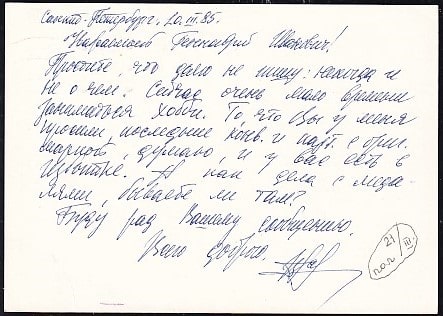 Санкт-Петербург, 20.III.85.
Уважаемый Геннадий Иванович!
Простите, что долго не пишу: некогда и
не о чем. Сейчас очень мало времени
заниматься хобби. То, что Вы у меня
просили, последние конв. и карт. с ориг.
маркой, думаю, и у вас есть в
избытке. А как дела с меда-
лями, бываете ли там?
Буду рад Вашему сообщению.
Всего доброго.
21/III
пол.